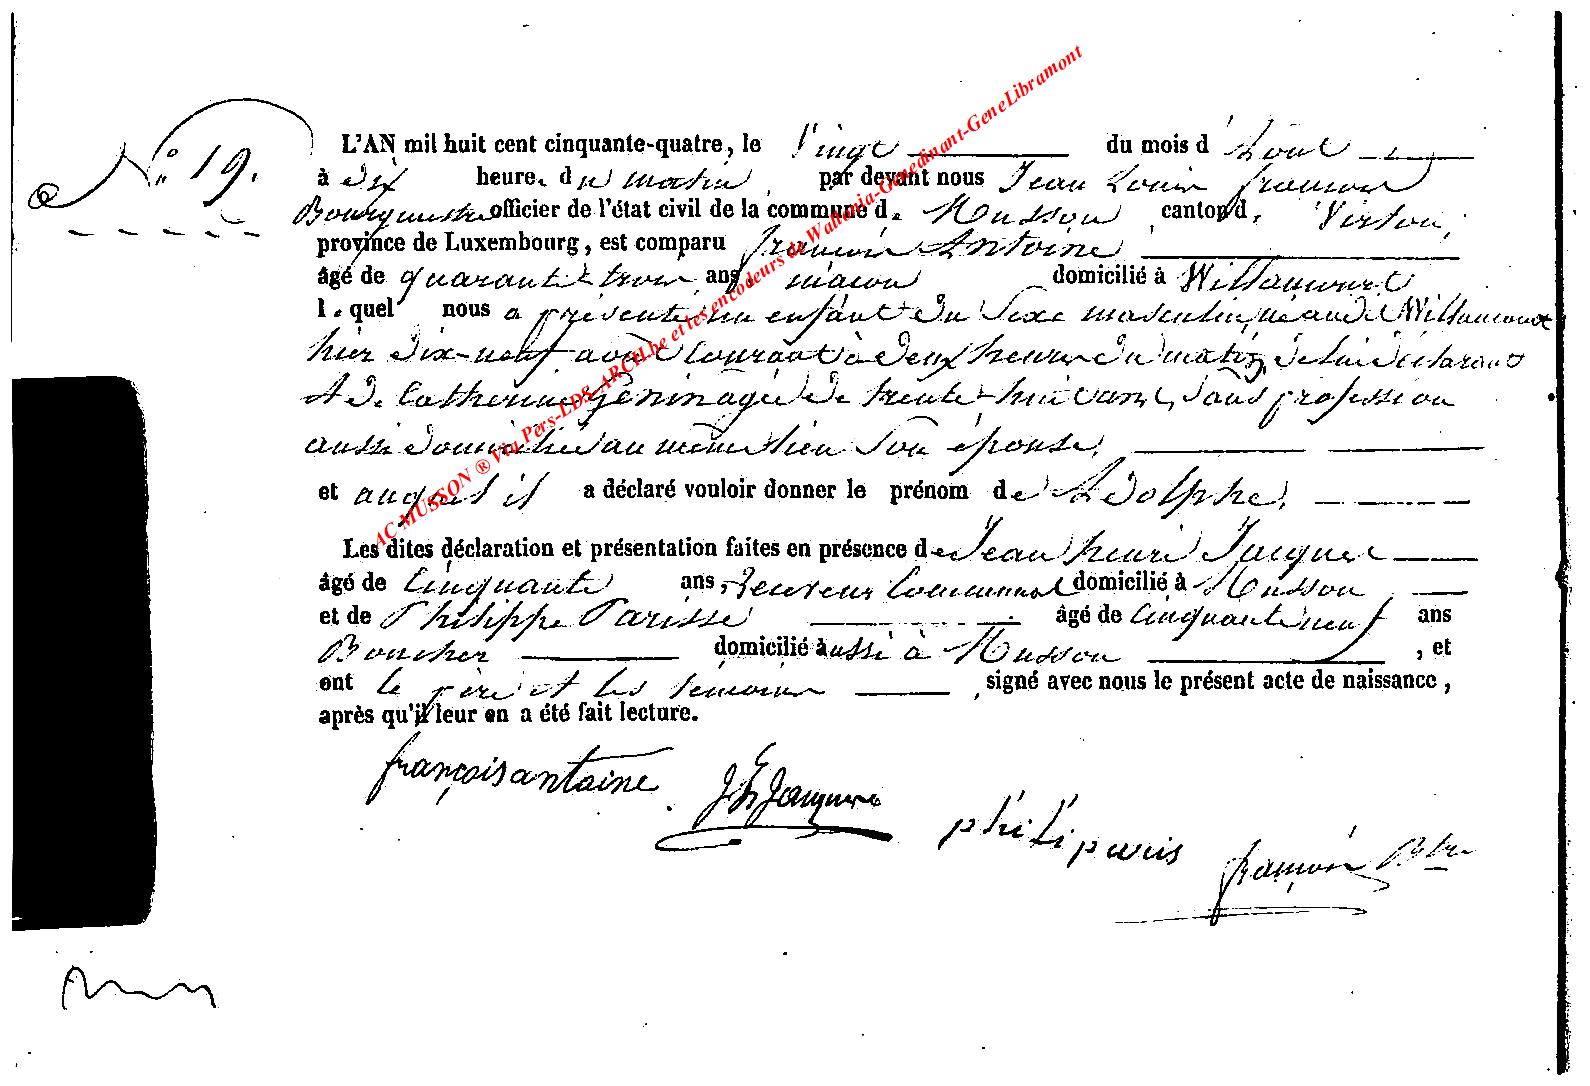 N° 19.
L'AN mil huit cent cinquante-quatre, le Vingt du mois d'Août
à dix heure. du matin par devant nous Jean Louis françois
Bourgmestre officier de l'état civil de la commune de Musson canton de Virton,
province de Luxembourg, est comparu françois Antoine
âgé de quarante trois ans maçon domicilié à Willancourt
lequel nous a présenté un enfant du sexe masculin, né audit Willancourt
hier dix-neuf août courant à deux heures du matin, de lui déclarant
et de Catherine Génin agée de trente-huit ans, sans profession
aussi domiciliée au même lieu son épouse,
et auquel il a déclaré vouloir donner le prénom de Adolphe,
Les dites déclaration et présentation faites en présence de Jean henri Jacques
âgé de cinquante ans Receveur Communal domicilié à Musson
et de Philippe Parisse âgé de cinquante neuf ans
Boucher domicilié aussi à Musson , et
ont le père et les témoins signé avec nous le présent acte de naissance,
après qu'il leur en a été fait lecture.
françois antoine
JH Jacques
philiparis
françois Btre
AC MUSSON ® Via Pers-LDS-ARCH.be et les encodeurs de Wallonia-Genedinant-GeneLibramont